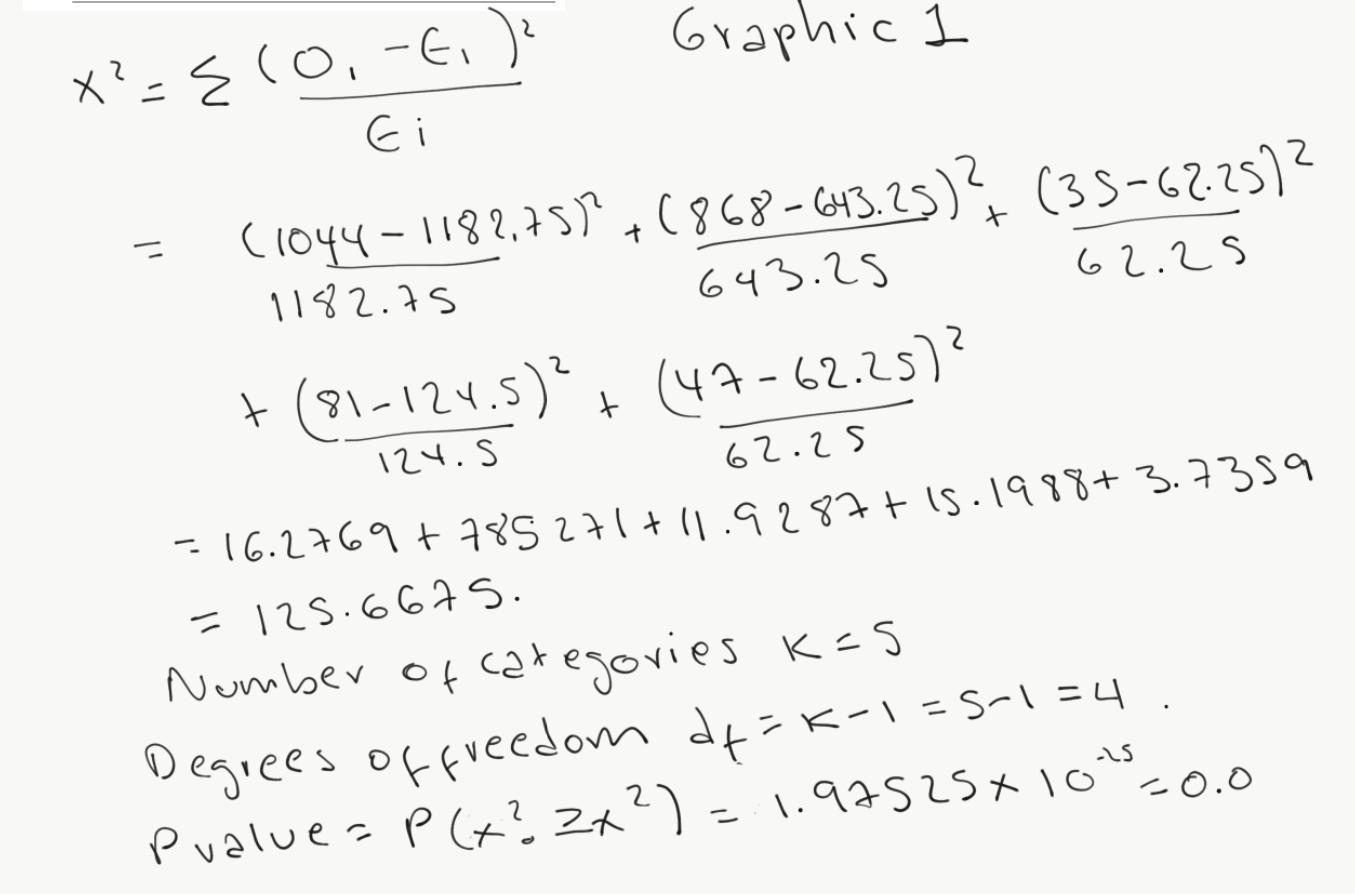 Graphic 1
x² = Σ (O₁ - E₁)² / Ei
= (1044 - 1182.75)² / 1182.75 + (868 - 643.25)² / 643.25 + (35 - 62.25)² / 62.25
+ (81 - 124.5)² / 124.5 + (47 - 62.25)² / 62.25
= 16.2769 + 785271 + 11.9287 + 15.1988 + 3.7359
= 125.6675.
Number of categories K = 5
Degrees of freedom df = K - 1 = 5 - 1 = 4 .
P value = P(x². 2x²) = 1.97525 x 10⁻²⁵ = 0.0